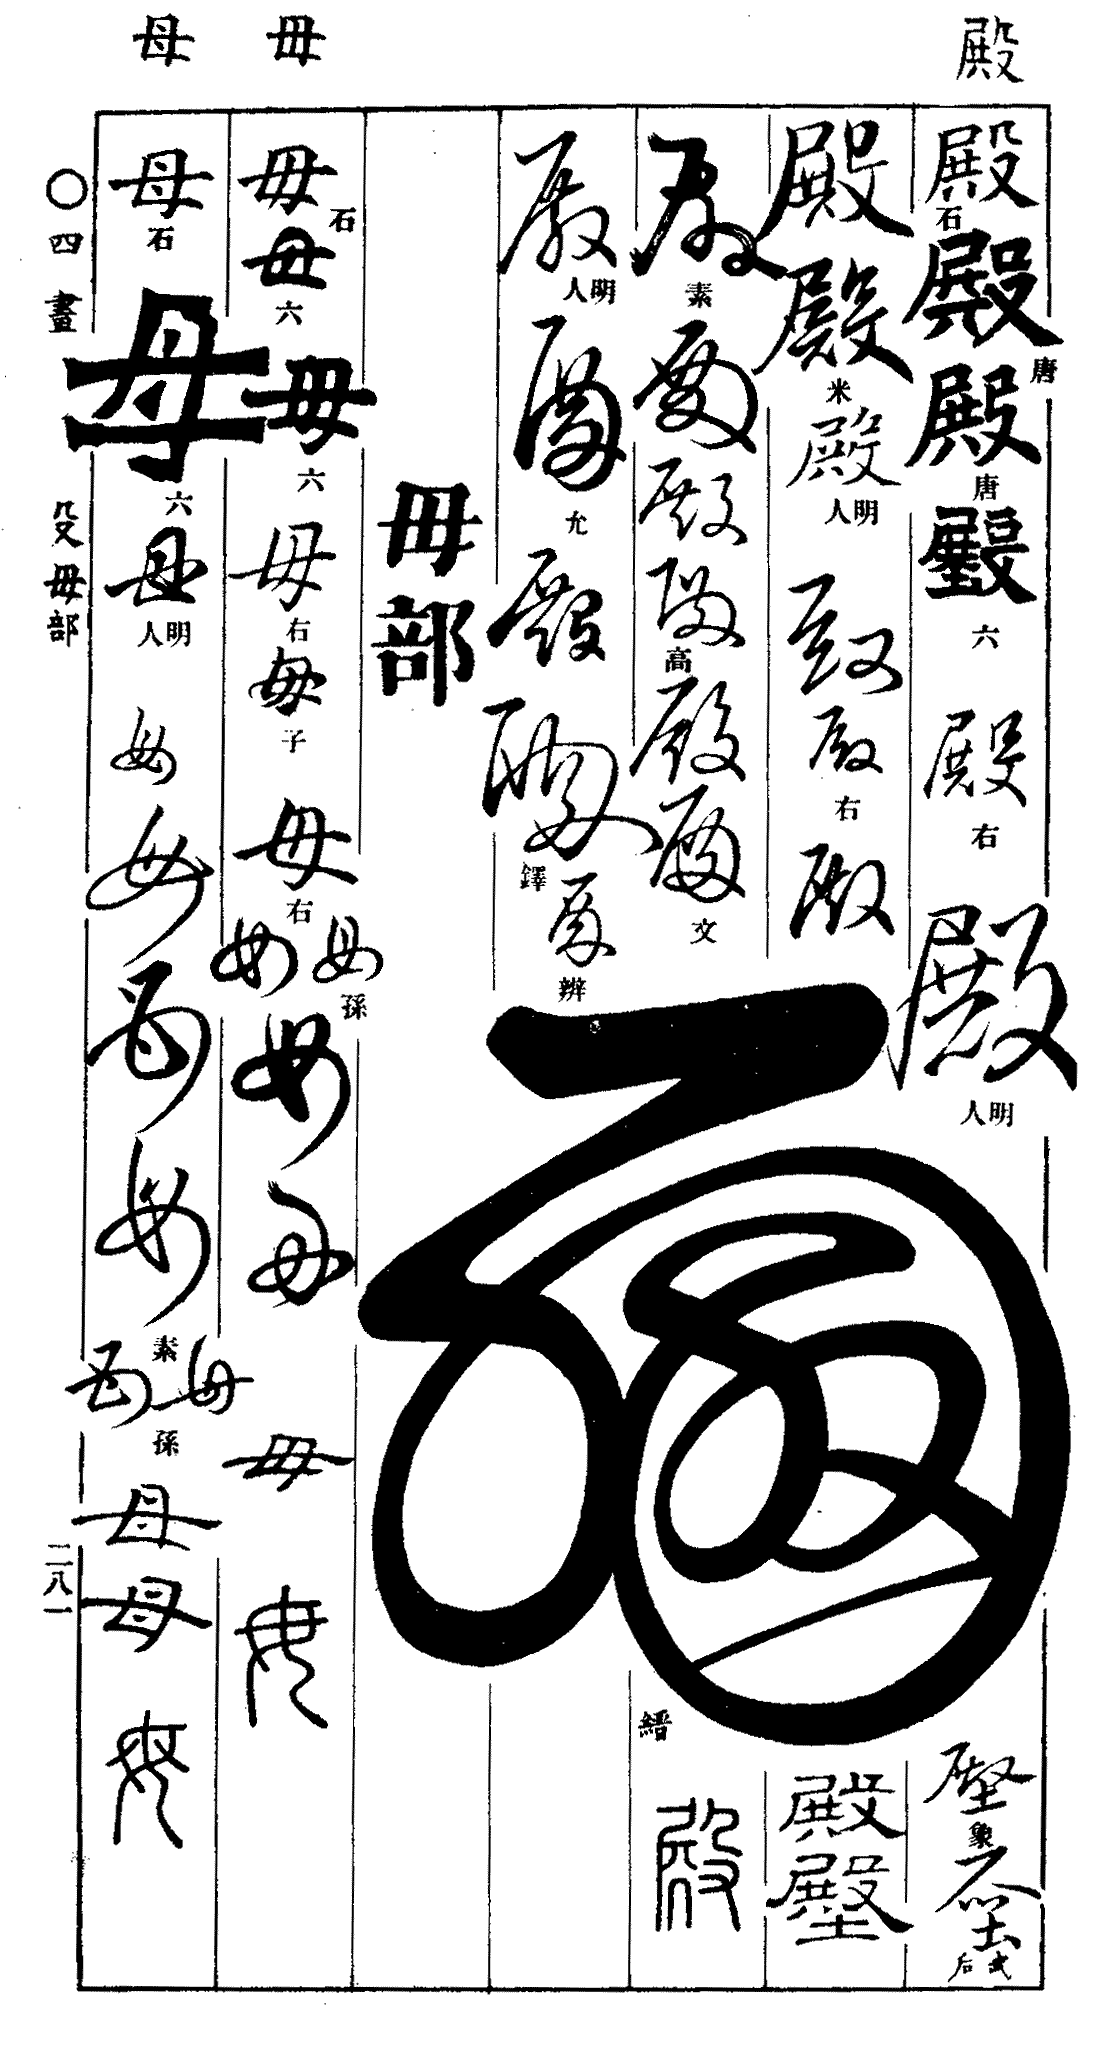 殿
毌
母
殿
石
殿
唐
殿
唐
殿
六
殿
右
殿
明人
殿
象
武后
殿
殿
米
殿
明人
殿
殿
右
殿
殿
殿
殿
素
殿
殿
殿
高
殿
殿
文
殿
縉
殿
殿
明人
殿
允
殿
殿
鐸
殿
辨
毌部
毋
石
毋
六
毋
六
毋
右
毋
子
毋
右
毋
毋
孫
毋
毋
毋
毋
母
石
母
六
母
明人
母
母
母
母
素
母
母
孫
母
母
母
〇四畫
殳毌部
二八一